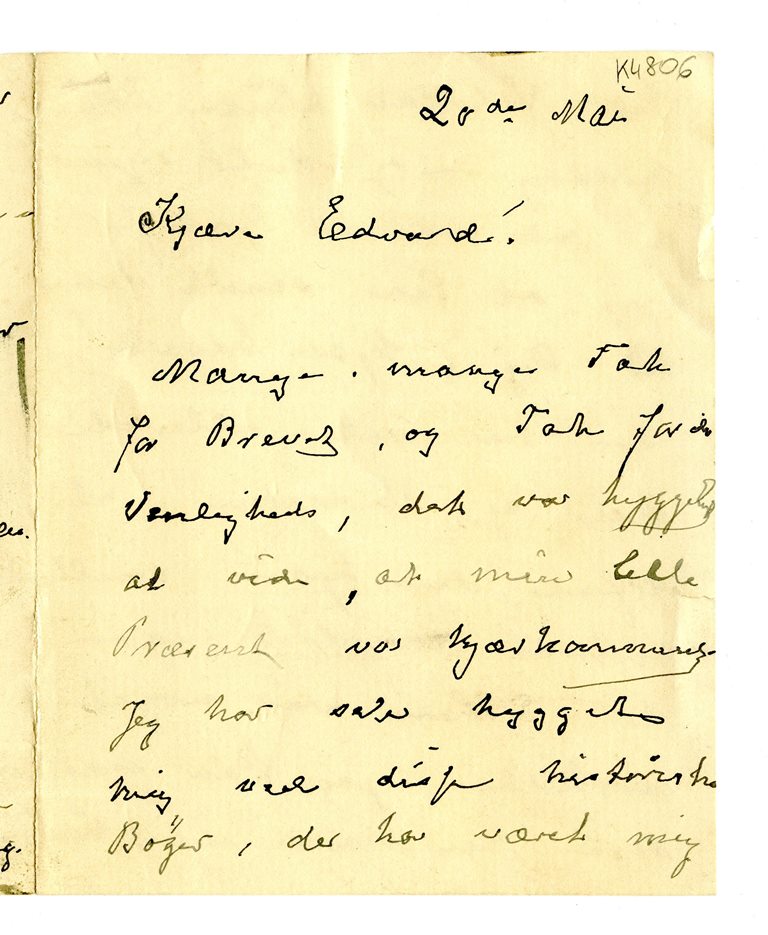 K4806
20de Mai
Kjære Edvard!
Mange, mange Tak
for Brevet, og Tak for din
Venlighed, det var hyggeligt
at vide, at min lille
Præsent var kjærkommen,
Jeg har selv hygget
mig ved disse historiske
Bøger, der har været mig